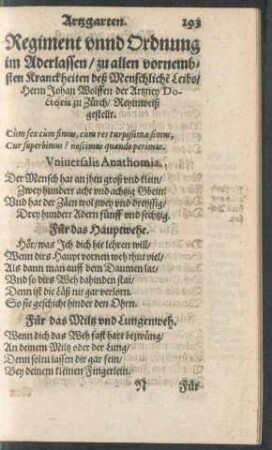 Artzgarten. 193
Regiment vnnd Ordnung
im Aderlassen / zu allen vornemb-
sten Kranckheiten deß Menschlichē Leibs /
Herrn Johan Wolffen der Artzney Do-
ctoris zu Zürch / Reymweiß
gestellt.
Cùm fex cùm fimus, cùm res turpissima simus,
Cur superbimus? nescimus quando perimus.
Vniuersalis Anathomia.
Der Mensch hat an jhm groß vnd klein /
Zwey hundert acht vnd achtzig Gbein:
Vnd hat der Zäen wol zwey vnd dreyssig /
Drey hundert Adern fünff vnd sechtzig.
Für das Hauptwehe.
Hör / was Ich dich hie lehren will /
Wenn dirs Haupt vornen weh thut viel /
Als dann man auff dem Daumen lat /
Vnd so dirs Weh dahinden stat /
Denn ist die Läß nit gar verlorn.
So sie geschicht hinder den Ohrn.
Für das Miltz vnd Lungenweh.
Wenn dich das Weh fast hart bezwüng /
An deinem Miltz oder der Lung /
Denn soltu lassen dir gar fein /
Bey deinem kleinen Fingerlein.
N Für